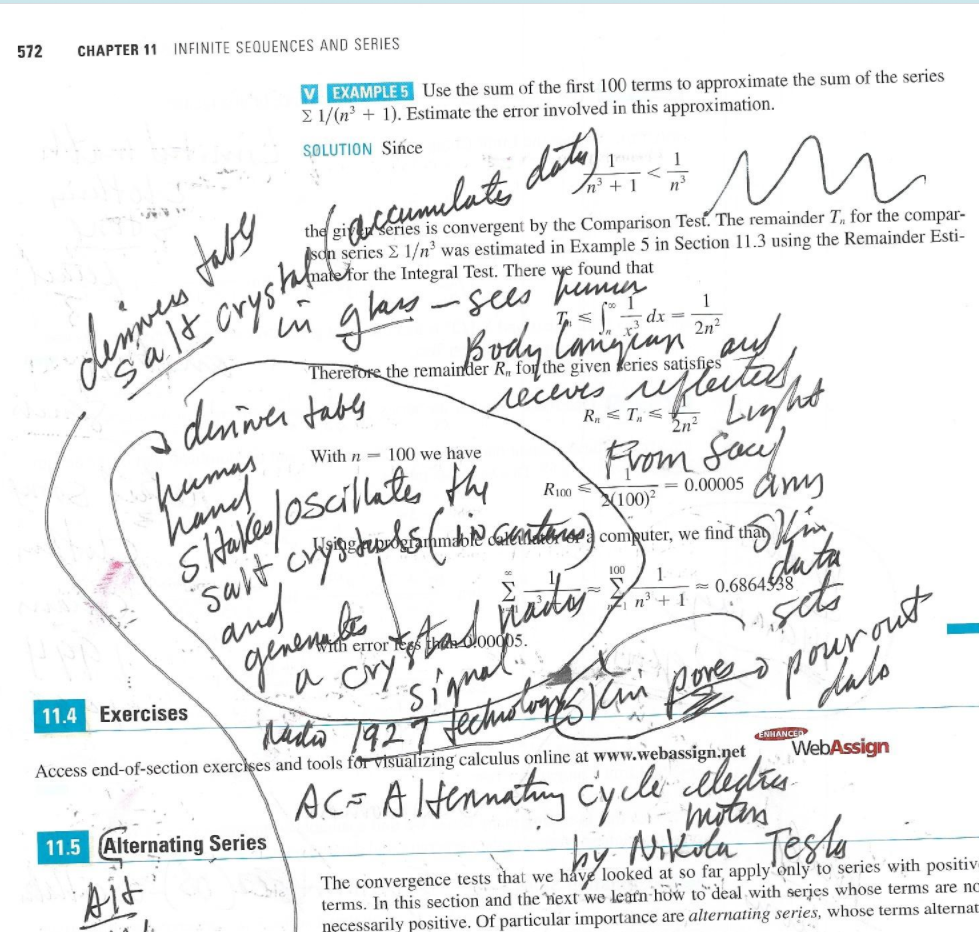 572 CHAPTER 11 INFINITE SEQUENCES AND SERIES
V EXAMPLE 5 Use the sum of the first 100 terms to approximate the sum of the series
Σ 1/(n³ + 1). Estimate the error involved in this approximation.
SOLUTION Since
1/(n³ + 1) < 1/n³
the given series is convergent by the Comparison Test. The remainder Tₙ for the compar-
ison series Σ 1/n³ was estimated in Example 5 in Section 11.3 using the Remainder Esti-
mate for the Integral Test. There we found that
Tₙ ≤ ∫ₙ^∞ 1/x³ dx = 1/2n²
Therefore the remainder Rₙ for the given series satisfies
Rₙ ≤ Tₙ ≤ 1/2n²
With n = 100 we have
R₁₀₀ ≤ 1/2(100)² = 0.00005
Using a programmable calculator or a computer, we find that
∑ 1/n³ + 1 ≈ ∑ 1/n³ + 1 ≈ 0.6864538
with error less than 0.00005.
tabs
salt crystal (accumulates data)
in glass - sees human
Body Language and
receives reflected
Light
From
arms
skin
data
sets
tabs
human
hand
shakes/oscillates the
salt crystals (in container)
and
generates
a crystal radio
signal
radio 1927 technology
skin pores → pour out
data
11.4 Exercises
Access end-of-section exercises and tools for visualizing calculus online at www.webassign.net
ENHANCED WebAssign
AC = Alternating cycle electric
motors
by Nikola Tesla
11.5 Alternating Series
Alt
The convergence tests that we have looked at so far apply only to series with positiv
terms. In this section and the next we learn how to deal with series whose terms are no
necessarily positive. Of particular importance are alternating series, whose terms alternat